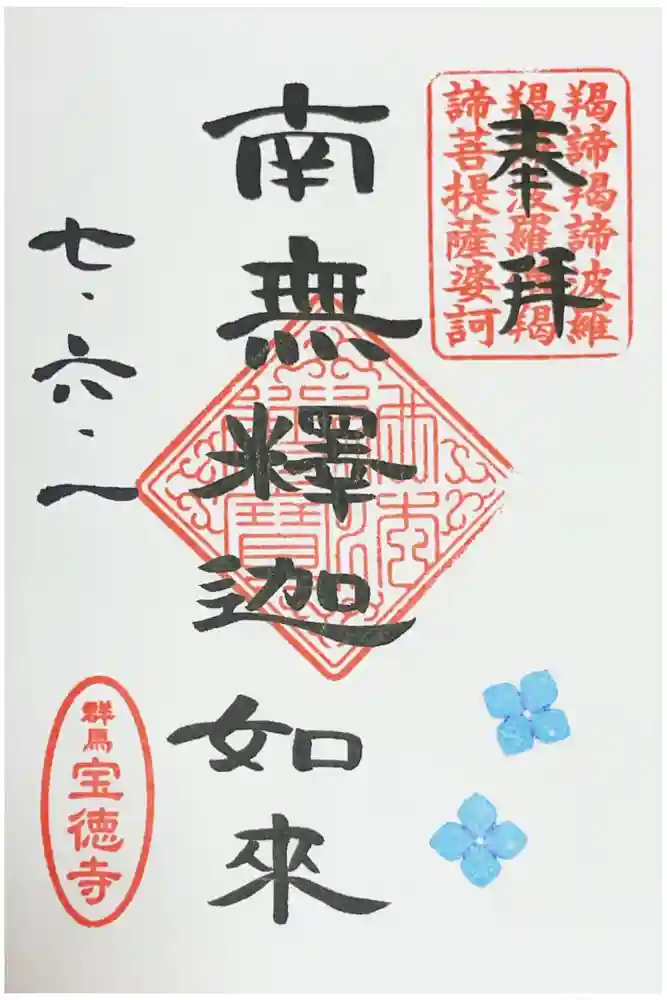 奉拝
羯諦羯諦波羅
羯諦波羅僧羯
諦菩提薩婆訶
南無釋迦如來
佛法
僧寶
七・六・一
群馬宝徳寺